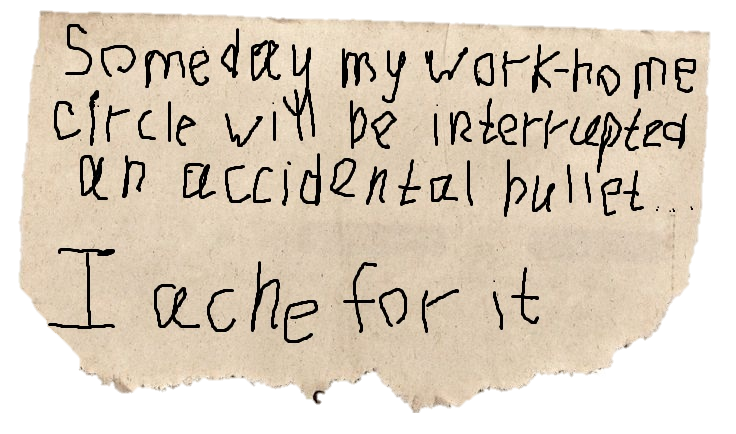 Someday my work-home
circle will be interrupted
an accidental bullet...
I ache for it